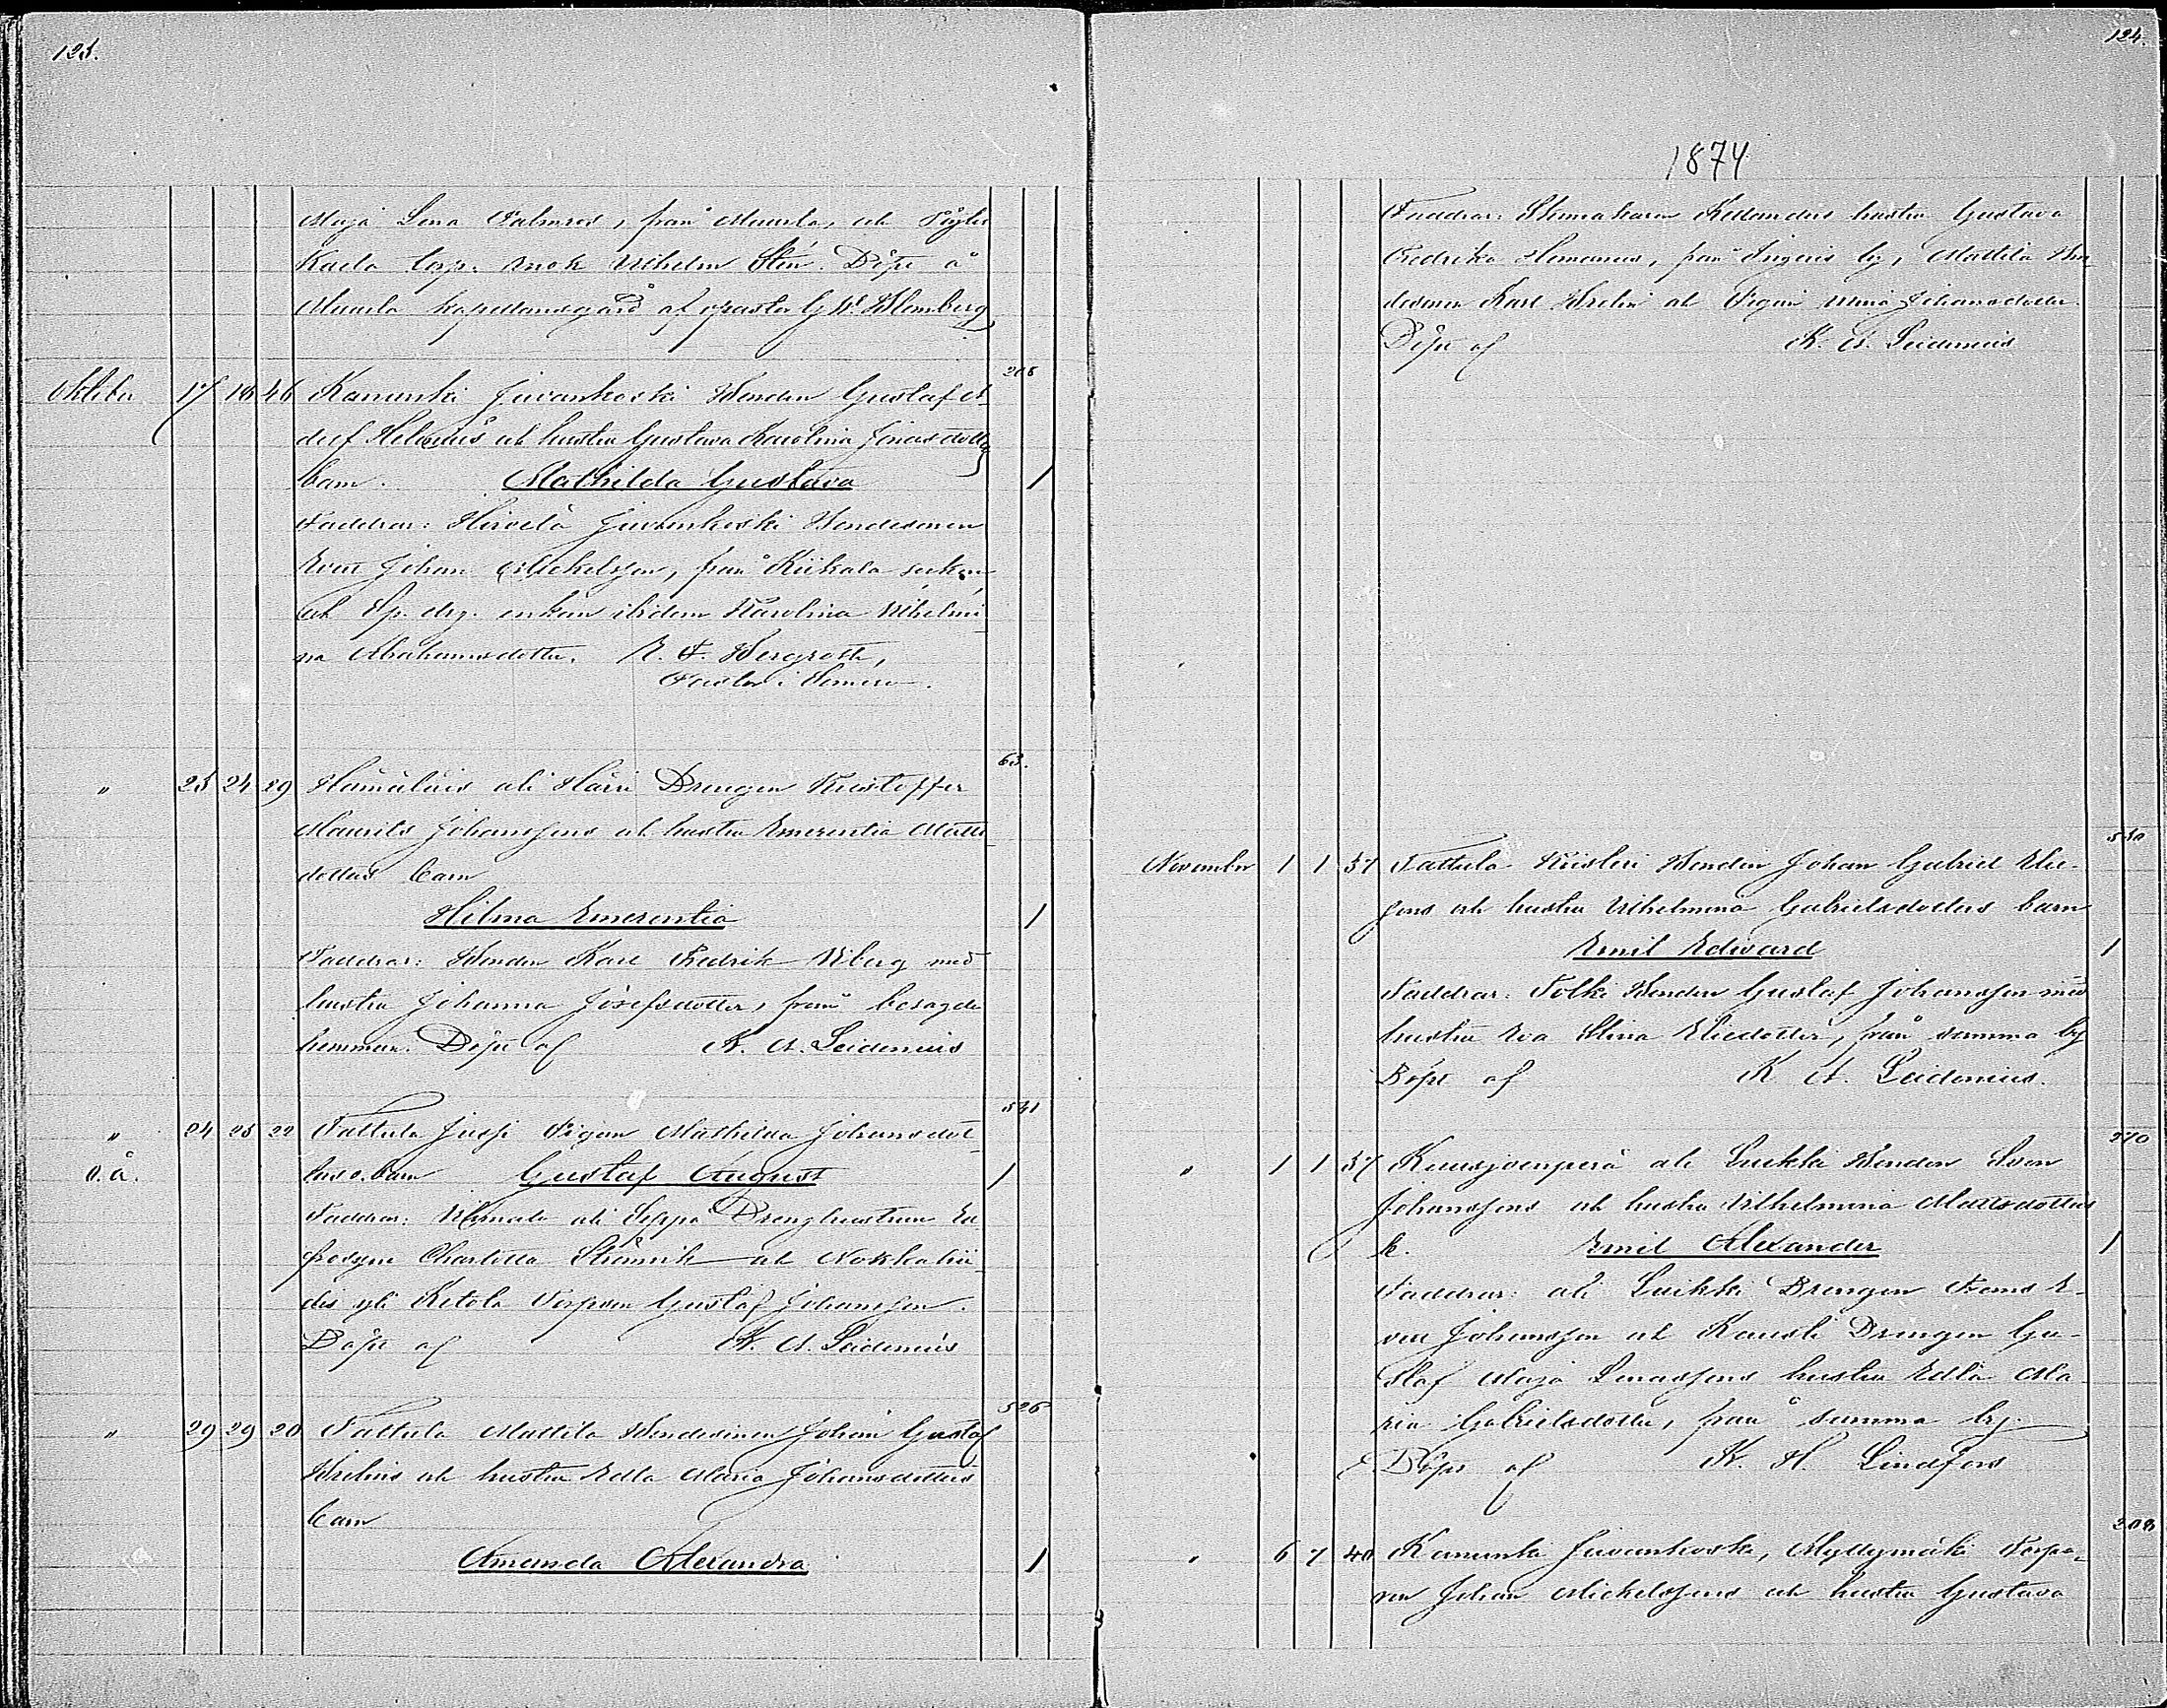 123.
Maja Lena Palmros, från Muurla, och
Karla Wilhelm Stén. Döpt å
Muurla kapellansgård af pastor G. W. Blomberg
208
Oktober 17 18 46 Kanunki Juvankoski Bonden Gustaf A-
dolf Helenius och hustru Gustava Karolina Jonasdotters
barn. Mathilda Gustava 1
Faddrar: Hirvelä Juvankoski Bondesonen
Johan Mickelsson, från Kiikala socken
och enkan ibidem Karolina Vilhelmi-
na Abrahamsdotter. K. F. Bergroth,
Pastor i Somero.
63.
" 23 24 29 Hämäläis ali Härri Drengen Kristoffer
Maurits Johanssons och hustru Emerentia Matts-
dotters barn
Hilma Emerentia 1
Faddrar: Bonden Karl Fredrik Viberg med
hustru Johanna Josefsdotter, från besagde
hemman. Döpt af K. A. Leidenius
531
" 24 25 22 Pattula Jussi Pigan Mathilda Johansdot-
o.ä. ters o. barn Gustaf August 1
Faddrar: ali Seppä Drenghustrun Eu-
frosyne Charlotta och
yli Ketola Torparen Gustaf Johansson.
Döpt af K. A. Leidenius
526
" 29 29 20 Pattula Mattila Bondesonen Johan Gustaf
och hustru Edla Maria Johansdotters
barn
Amanda Alexandra 1
124.
1874
Faddrar: Skomakaren hustru Gustava
Fredrika Homanus, från Ingeris by, Mattila Bon-
desonen Karl och Pigan Mina Johansdotter.
Döpt af K. A. Leidenius
530
November 1 1 37 Pattula Bonden Johan Gabriel Elie-
sons och hustru Vilhelmina Gabrielsdotters barn
Emil Edvard 1
Faddrar: Tolki Bonden Gustaf Johansson med
hustru Eva Stina Eliedotter, från samma by
Döpt af K. A. Leidenius.
270
" 1 1 37 Kuusjoenperä ali Luikki Bonden Sven
Johanssons och hustru Vilhelmina Mattsdotters
b. Emil Alexander 1
Faddrar: ali Luikki Drengen Frans E-
vert Johansson och Drengen Gu-
staf Maja Lenassons hustru Edla Ma-
ria Gabrielsdotter, från samma by.
Döpt af K. H. Lindfors
208
" 6 7 40 Kanunki Juvankoski, Myllymäki Torpa-
ren Johan Mickelssons och hustru Gustava